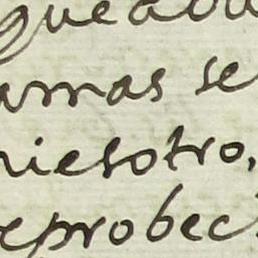 que abu
amas se
niesotro,
eprobec